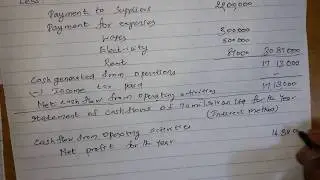 Less
Payment to Suppliers 2200000
Payment for expenses
Wages 500000
Electricity 300000
Rent 87000 2087000
Cash generated from operations 1713000
(-) Income tax paid
Net cash flow from operating activities 1713000
Statement of cash flows of for the year
(Indirect method)
Cash flow from operating activities
Net profit for the year